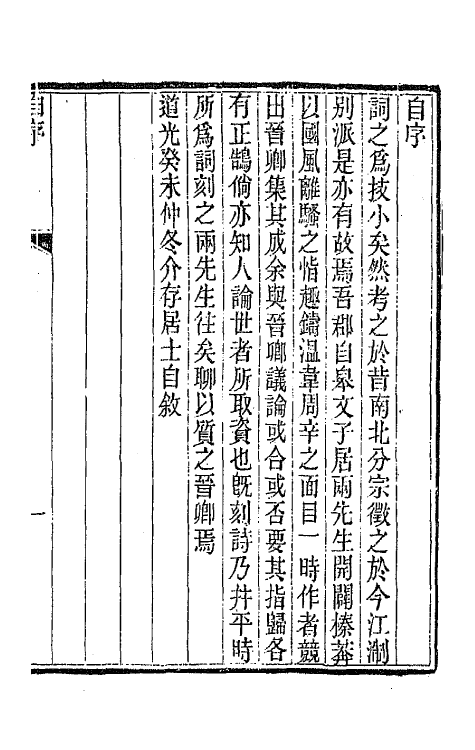 自序
詞之爲技小矣然考之於昔南北分宗徵之於今江淛
別派是亦有故焉吾郡自皋文子居兩先生開闢榛莽
以國風離騷之恉趣鑄溫韋周辛之面目一時作者競
出晉卿集其成余與晉卿議論或合或否要其指歸各
有正鵠倘亦知人論世者所取資也旣刻詩乃幷平時
所爲詞刻之兩先生往矣聊以質之晉卿焉
道光癸未仲冬介存居士自敘
自序
一